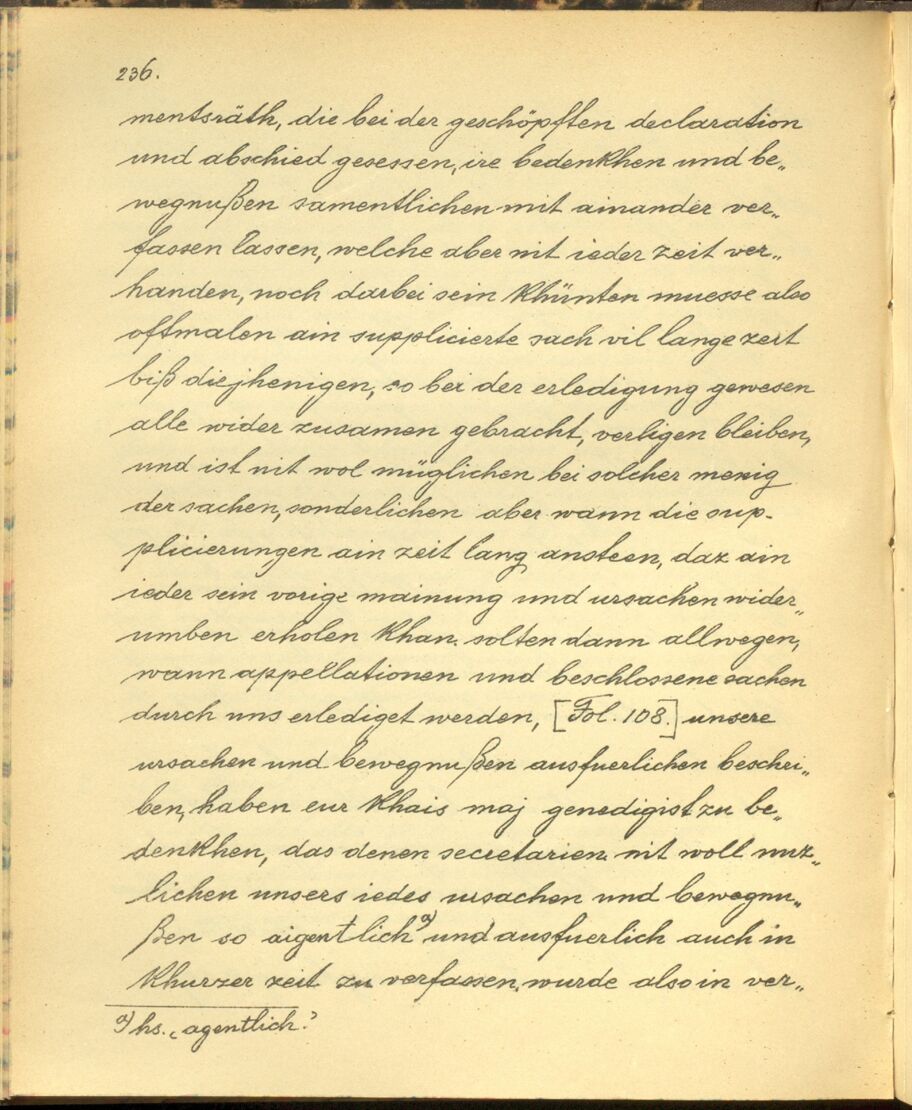 236.
mentsräth, die bei der geschöpften declaration
und abschied gesessen, ire bedenkhen und be„
wegnußen samentlichen mit ainander ver„
fassen lassen, welche aber nit ieder zeit ver„
handen, noch darbei sein khünten muesse also
offtmalen ain supplicierte sach vil lange zeit
biß diejhenigen, so bei der erledigung gewesen
alle wider zusamen gebracht, verligen bleiben,
und ist nit wol müglichen bei solcher menig
der sachen, sonderlichen aber wann die sup-
plicierungen ain zeit lang ansteen, daz ain
ieder sein vorige mainung und ursachen wider„
umben erholen khan. solten dann allwegen,
wann appellationen und beschlossene sachen
durch uns erlediget werden, [Fol. 108.] unsere
ursachen und bewegnußen ausfuerlichen beschri„
ben, haben eur khais maj genedigist zu be„
denkhen, das denen secretarien nit woll müz„
lichen unsers iedes ursachen und bewegnu„
ßen so aigentlich a) und ausfuerlich auch in
khurzer zeit zu verfassen, wurde also in ver„
a) hs. „agentlich."